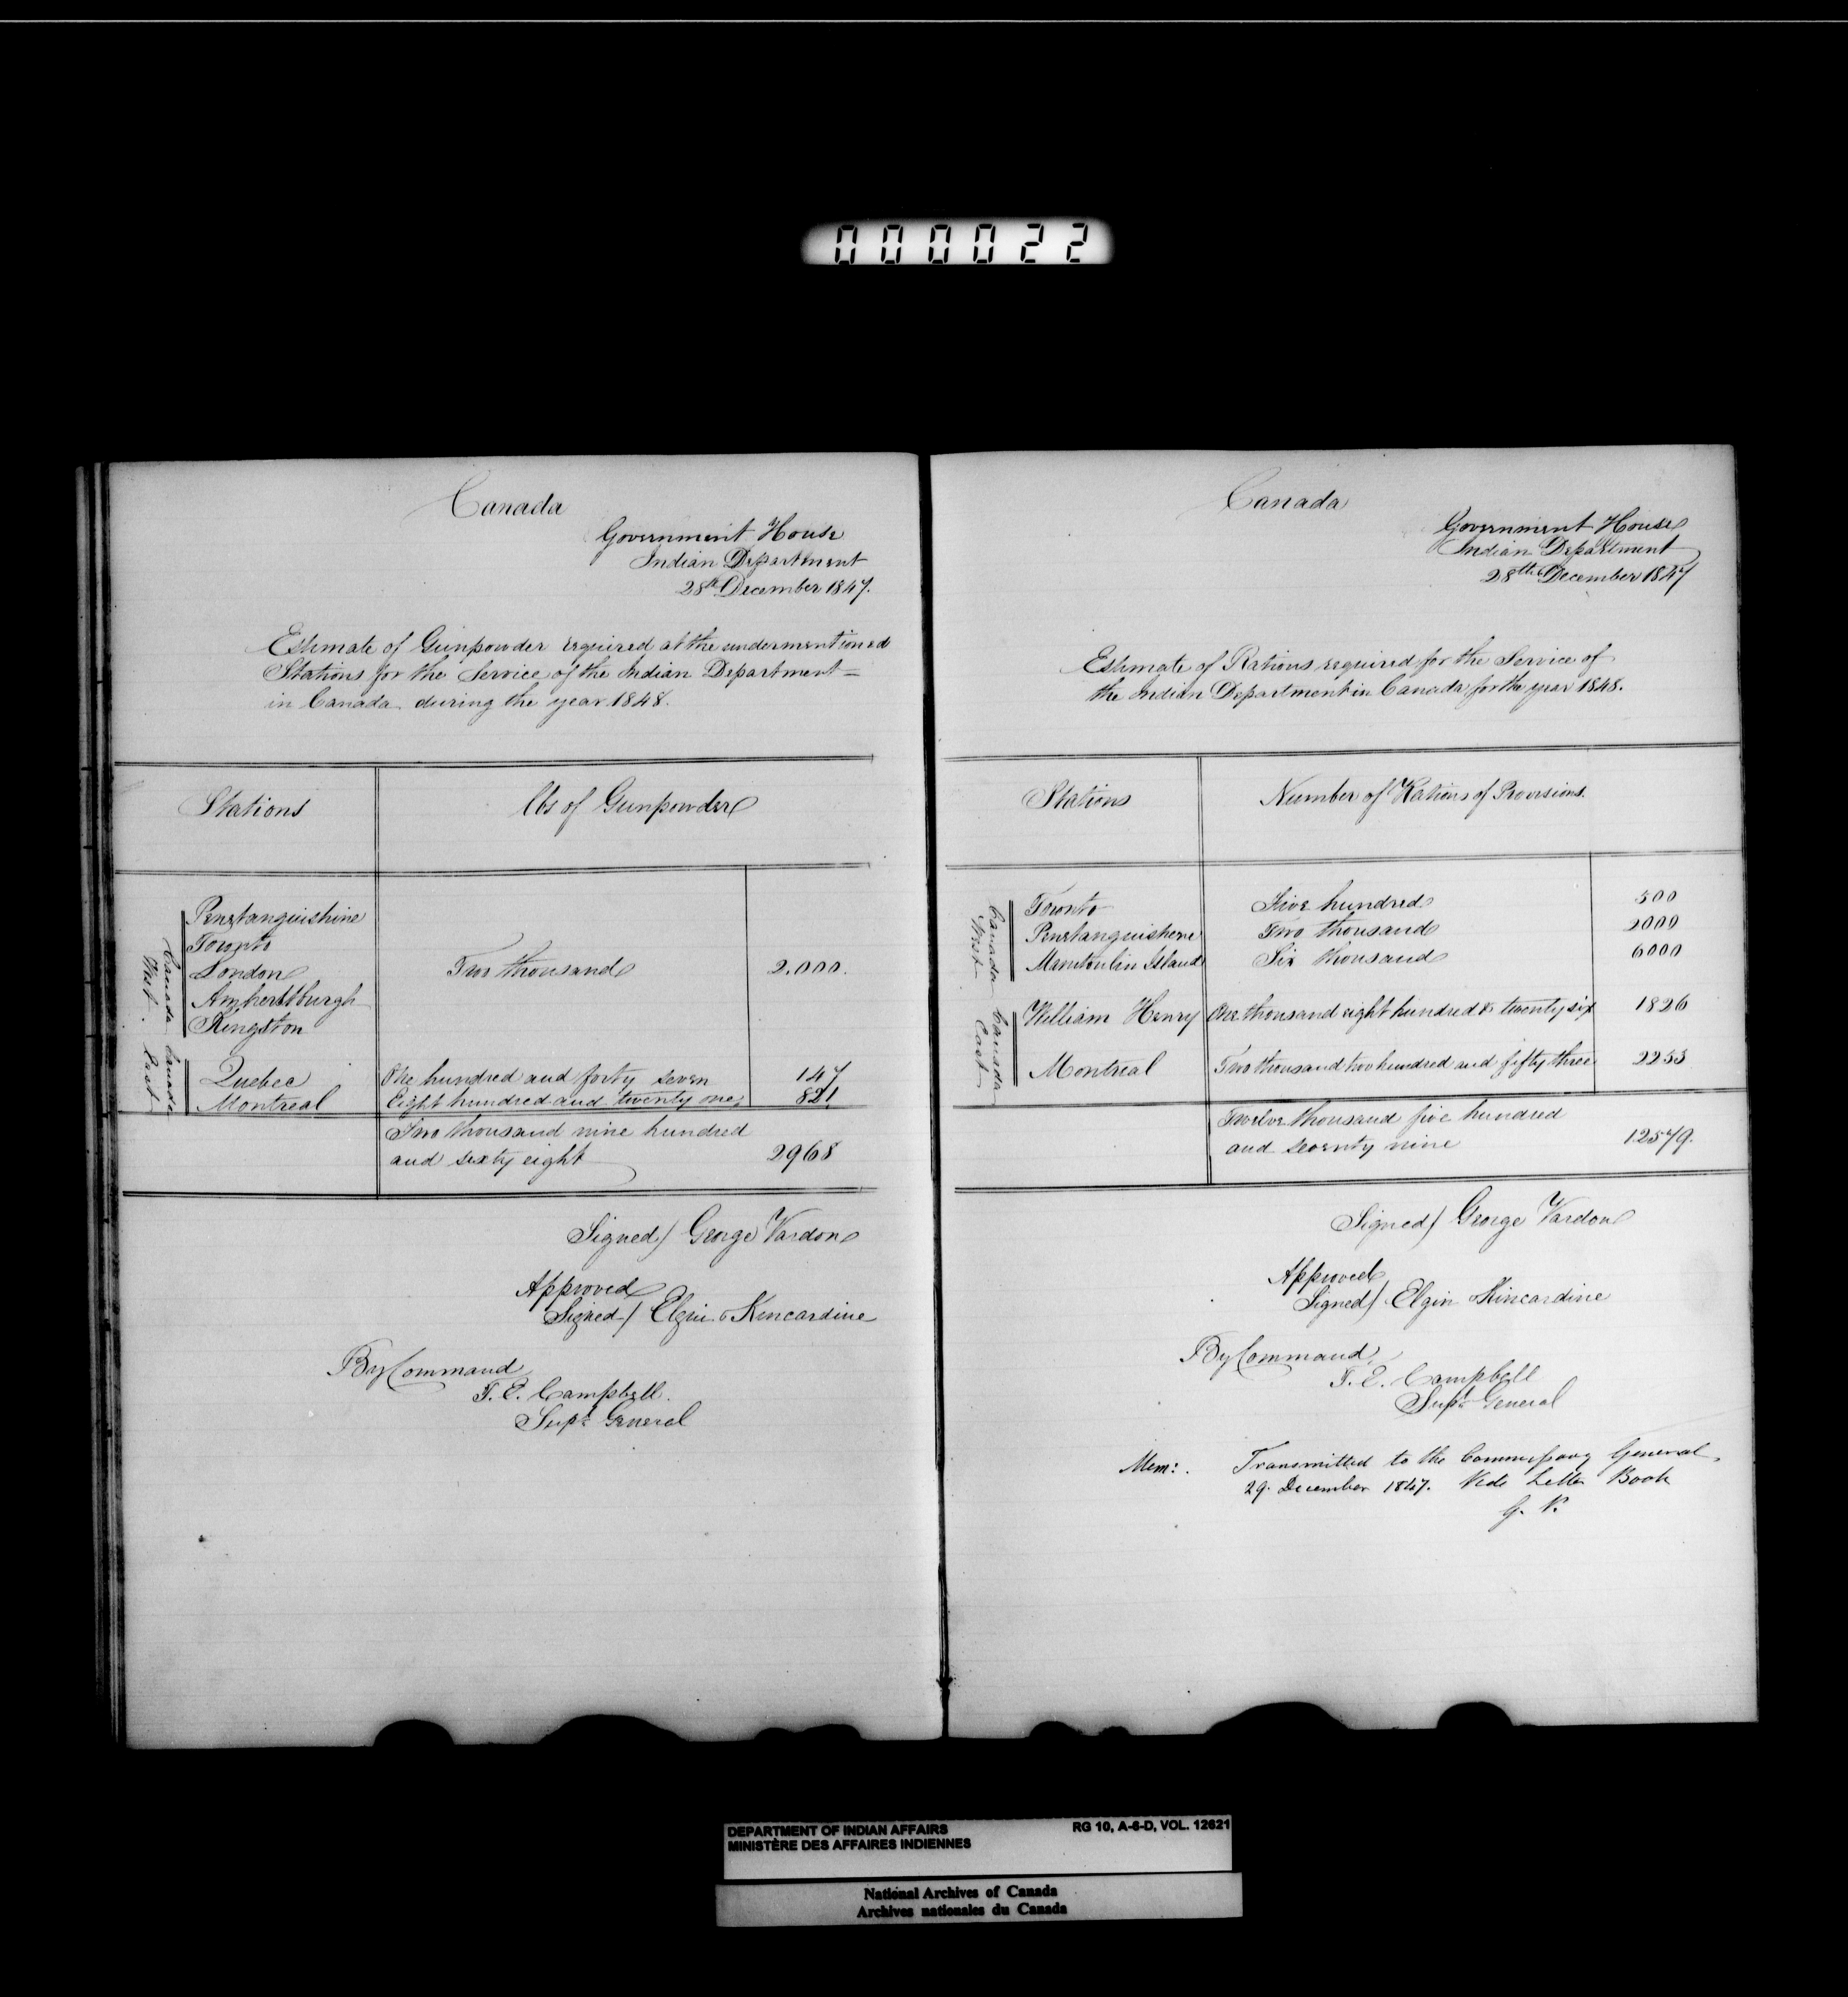 000022
Canada
Government House
Indian Department
28th December 1847.
Estimate of Gunpowder required at the undermentioned
Stations for the Service of the Indian Department =
in Canada during the year 1848.
Stations
lbs of Gunpowder
Canada West.
Penetanguishine
Toronto
London
Amherstburgh
Kingston
Two thousand 2.000.
Canada East
Quebec One hundred and forty seven 147
Montreal Eight hundred and twenty one. 821
Two thousand nine hundred
and sixty eight 2968
Signed/ George Vardon
Approved
Signed/ Elgin & Kincardine
By Command
T. E. Campbell.
Supt General
Canada
Government House
Indian Department
28th December 1847
Estimate of Rations required for the Service of
the Indian Department in Canada for the year 1848.
Stations
Number of Rations of Provisions.
Canada West
Toronto Five hundred 500
Penetanguishene Two thousand 2000
Manitoulin Island Six thousand 6000
Canada East
William Henry One thousand eight hundred & twenty six 1826
Montreal Two thousand two hundred and fifty three 2253
Twelve thousand five hundred
and seventy nine 12579.
Signed/ George Vardon
Approved
Signed/ Elgin & Kincardine
By Command,
T. E. Campbell
Supt General
Mem: Transmitted to the Commissary General,
29. December 1847. Vide Letter Book
G. V.
DEPARTMENT OF INDIAN AFFAIRS RG 10, A-6-D, VOL. 12621
MINISTÈRE DES AFFAIRES INDIENNES
National Archives of Canada
Archives nationales du Canada